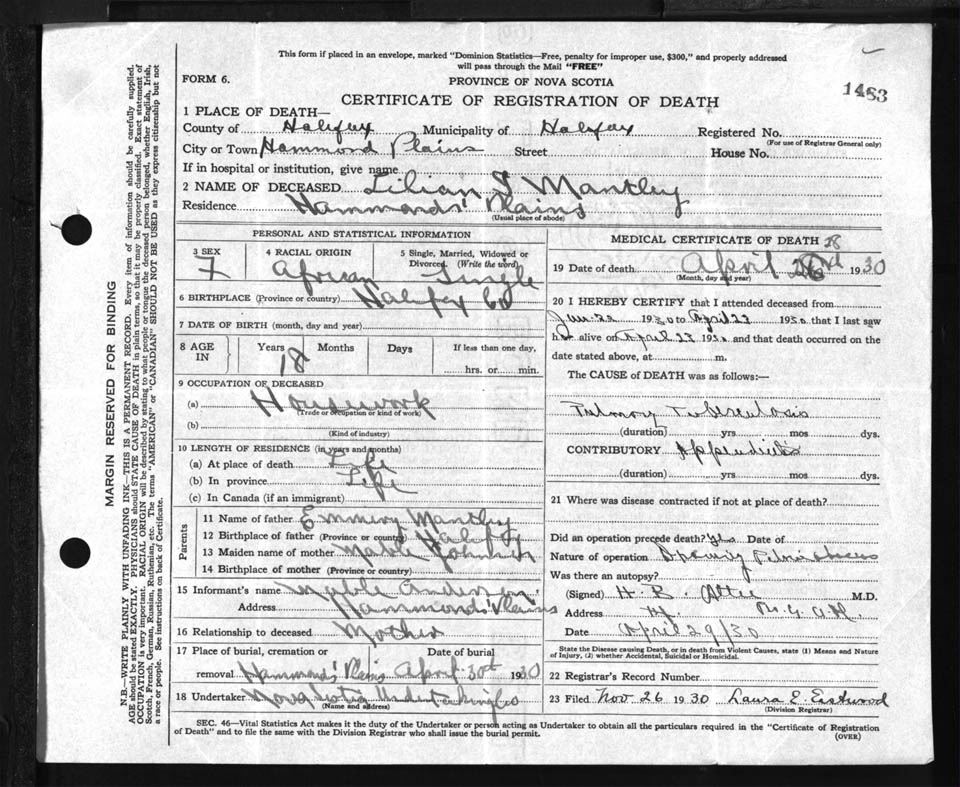 This form if placed in an envelope, marked "Dominion Statistics—Free, penalty for improper use, $300," and properly addressed
will pass through the Mail "FREE"
FORM 6.
PROVINCE OF NOVA SCOTIA
1463
CERTIFICATE OF REGISTRATION OF DEATH
1 PLACE OF DEATH—
County of Halifax Municipality of Halifax Registered No.
(For use of Registrar General only)
City or Town Hammond Plains Street House No.
If in hospital or institution, give name
2 NAME OF DECEASED Lilian J Mantley
Residence Hammonds' Plains
(Usual place of abode)
PERSONAL AND STATISTICAL INFORMATION
3 SEX 4 RACIAL ORIGIN 5 Single, Married, Widowed or
Divorced. (Write the word)
F African Single
6 BIRTHPLACE (Province or country) Halifax Co
7 DATE OF BIRTH (month, day and year)
8 AGE IN Years Months Days If less than one day,
18 hrs. or min.
9 OCCUPATION OF DECEASED
(a) Housework
(Trade or occupation or kind of work)
(b)
(Kind of industry)
10 LENGTH OF RESIDENCE (in years and months)
(a) At place of death Life
(b) In province Life
(c) In Canada (if an immigrant)
Parents
11 Name of father Emmery Mantley
12 Birthplace of father (Province or country) Halifax
13 Maiden name of mother Johnson
14 Birthplace of mother (Province or country)
15 Informant's name Anderson
Address Hammonds' Plains
16 Relationship to deceased Mother
17 Place of burial, cremation or Date of burial
removal Hammonds' Plains April 30th 1930
18 Undertaker Nova Scotia Undertaking Co
(Name and address)
MEDICAL CERTIFICATE OF DEATH
28
19 Date of death April 1930
(Month, day and year)
20 I HEREBY CERTIFY that I attended deceased from
1930 to April 23 1930 that I last saw
her alive on April 23 1930 and that death occurred on the
date stated above, at m.
The CAUSE of DEATH was as follows:
Pulmory Tuberculosis
(duration) yrs mos dys.
CONTRIBUTORY Appendicitis
(duration) yrs mos dys.
21 Where was disease contracted if not at place of death?
Did an operation precede death? Yes Date of
Nature of operation
Was there an autopsy?
(Signed) H. B. M.D.
Address
Date April 29/30
State the Disease causing Death, or in death from Violent Causes, state (1) Means and Nature
of Injury, (2) whether Accidental, Suicidal or Homicidal.
22 Registrar's Record Number
23 Filed Nov 26 1930 Laura E. Eastwood
(Division Registrar)
SEC. 46—Vital Statistics Act makes it the duty of the Undertaker or person acting as Undertaker to obtain all the particulars required in the "Certificate of Registration
of Death" and to file the same with the Division Registrar who shall issue the burial permit.
(OVER)
MARGIN RESERVED FOR BINDING
N.B.—WRITE PLAINLY WITH UNFADING INK—THIS IS A PERMANENT RECORD. Every item of information should be carefully supplied.
AGE should be stated EXACTLY. PHYSICIANS should STATE CAUSE OF DEATH in plain terms, so that it may be properly classified. Exact statement of
OCCUPATION is very important. RACIAL ORIGIN will be described by stating to what people or tongue the deceased person belonged, whether English, Irish,
Scotch, French, German, Russian, Ruthenian, etc. The terms "AMERICAN" or "CANADIAN" SHOULD NOT BE USED as they express citizenship but not
a race or people. See instructions on back of Certificate.